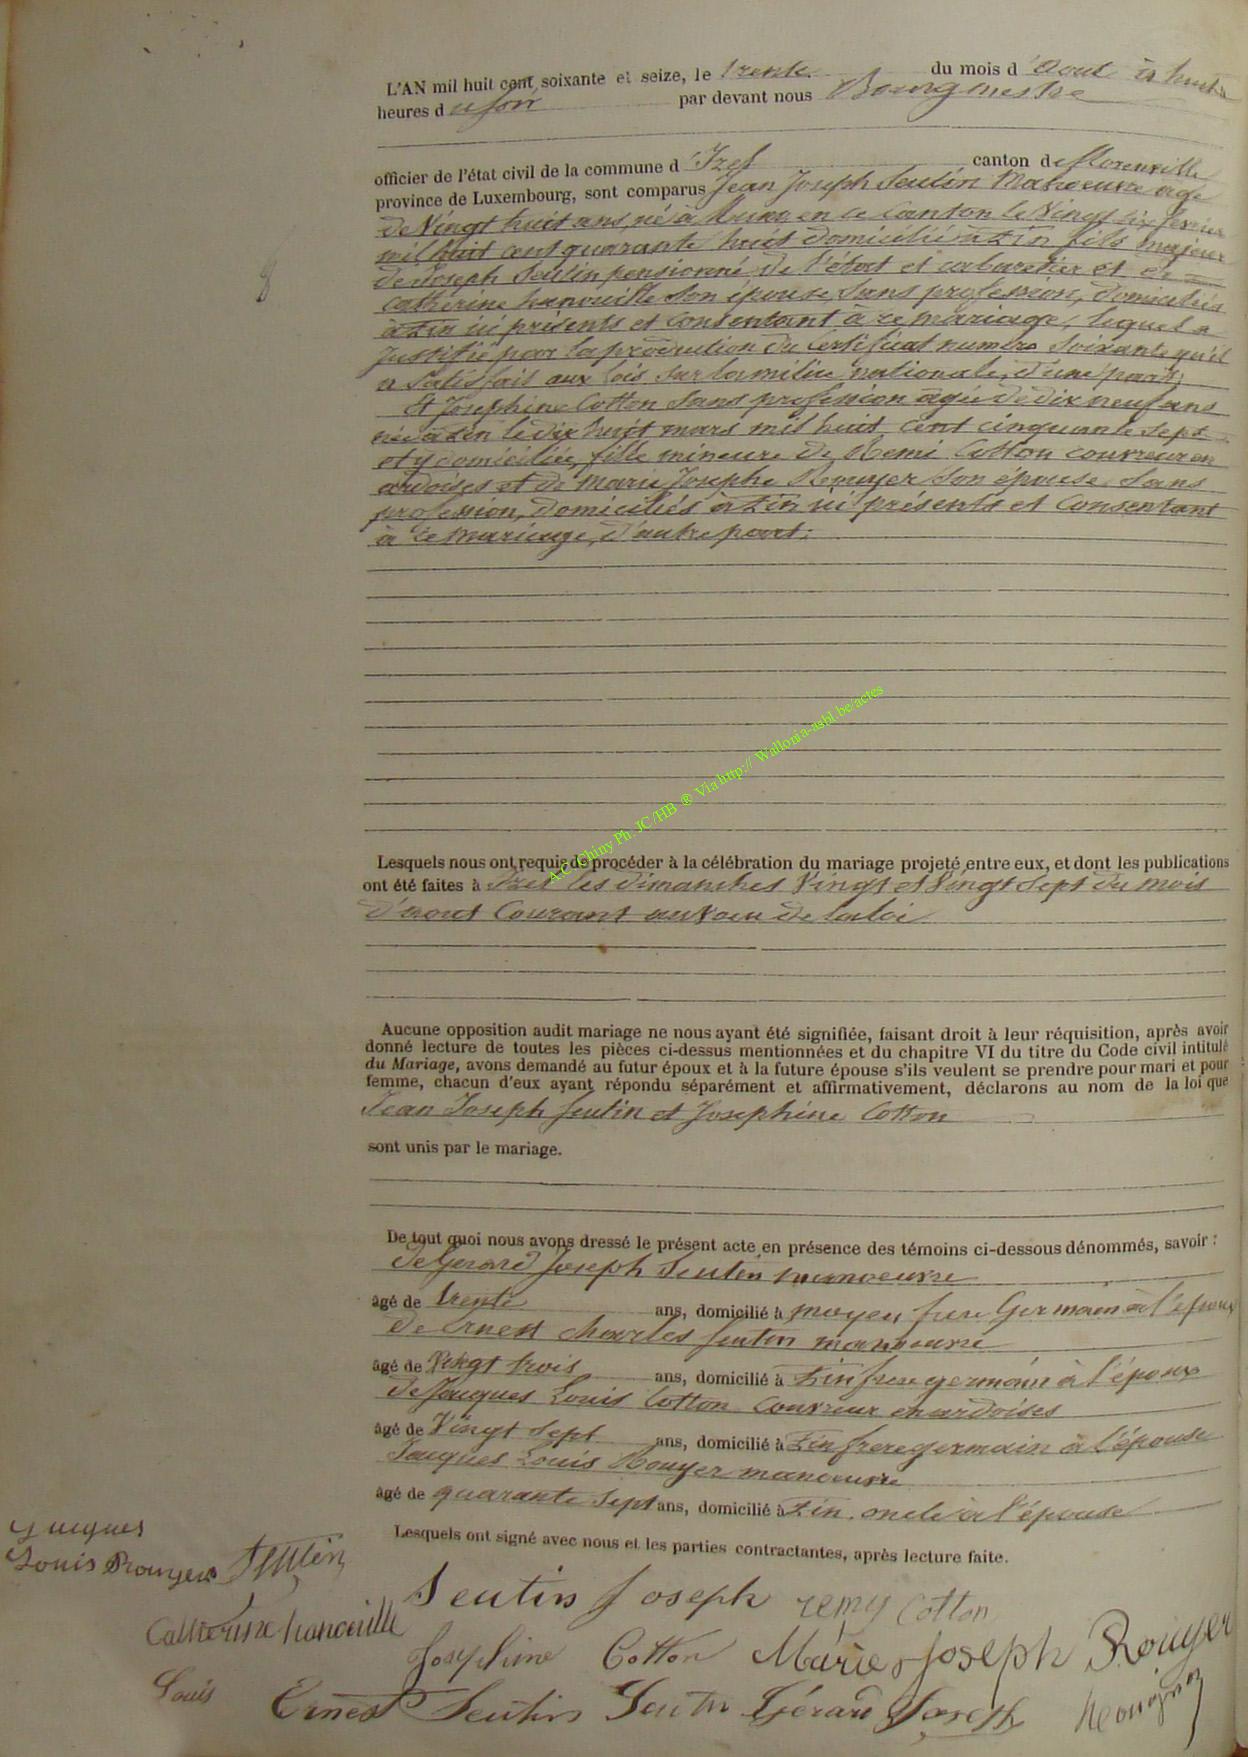 8
L'AN mil huit cent soixante et seize, le trente du mois d'aout à huit
heures du soir par devant nous Bourgmestre
officier de l'état civil de la commune d'Izel canton de florenville
province de Luxembourg, sont comparus Jean Joseph Seutin Manoeuvre agé
de Vingt huit ans, né à Muno, en ce Canton le Vingt six fevrier
mil huit cent quarante huit domicilié à fils majeur
de Joseph Seutin pensionné de l'état et cabaretier et de
Catherine hanouille son épouse, sans profession, domiciliés
à ici présents et consentant à ce mariage, lequel a
justifié par la production du Certificat numero soixante qu'il
a satisfait aux lois sur la milice nationale, d'une part;
Et Josephine Cotton sans profession agée de dix neuf ans
née à le dix huit mars mil huit cent cinquante sept
et y domiciliée, fille mineure de Remi Cotton couvreur en
ardoises et de Marie Josephe Rouyer son épouse, sans
profession, domiciliés à ici présents et Consentant
à ce mariage, d'autre part;
A.C. Chiny Ph. JC/HB ® Via http:// Wallonia-asbl.be/actes
Lesquels nous ont requis de procéder à la célébration du mariage projeté entre eux, et dont les publications
ont été faites à Izel les dimanches Vingt et Vingt sept du mois
d'aout Courant au voeu de la loi
Aucune opposition audit mariage ne nous ayant été signifiée, faisant droit à leur réquisition, après avoir
donné lecture de toutes les pièces ci-dessus mentionnées et du chapitre VI du titre du Code civil intitulé
du Mariage, avons demandé au futur époux et à la future épouse s'ils veulent se prendre pour mari et pour
femme, chacun d'eux ayant répondu séparément et affirmativement, déclarons au nom de la loi que
Jean Joseph Seutin et Josephine Cotton
sont unis par le mariage.
De tout quoi nous avons dressé le présent acte en présence des témoins ci-dessous dénommés, savoir :
de Gerard Joseph Seutin manoeuvre
âgé de trente ans, domicilié à moyen frere Germain à l'époux
de Ernest Charles Seutin manoeuvre
âgé de Vingt trois ans, domicilié à frere germain à l'époux
de Jacques Louis Cotton Couvreur en ardoises
âgé de Vingt sept ans, domicilié à frere germain à l'épouse
Jacques Louis Rouyer manoeuvre
âgé de quarante sept ans, domicilié à oncle à l'épouse
Lesquels ont signé avec nous et les parties contractantes, après lecture faite.
Jacques
Louis Rouyer Seutin
Seutin Joseph remy Cotton
Catherine hanouille
Josephine Cotton Marie Joseph Rouyer
Louis
Ernest Seutin Seutin Gérard Joseph